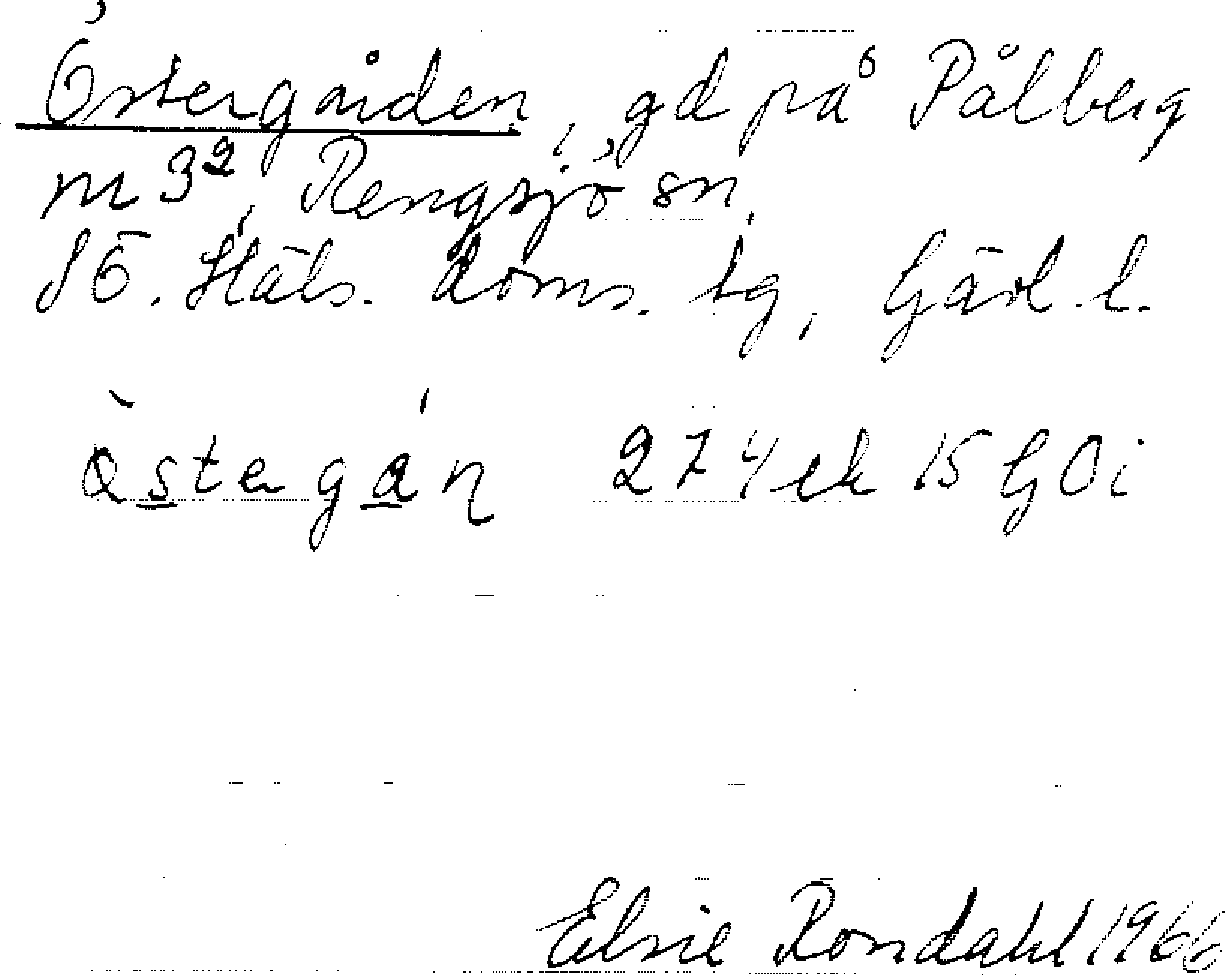 Östergården, gd på Pålberg
m 3², Rengsjö sn,
SÖ. Häls. doms. tg, Gävl. l.
östegán 274 ek 15 GOi
Elsie Rondahl 1966